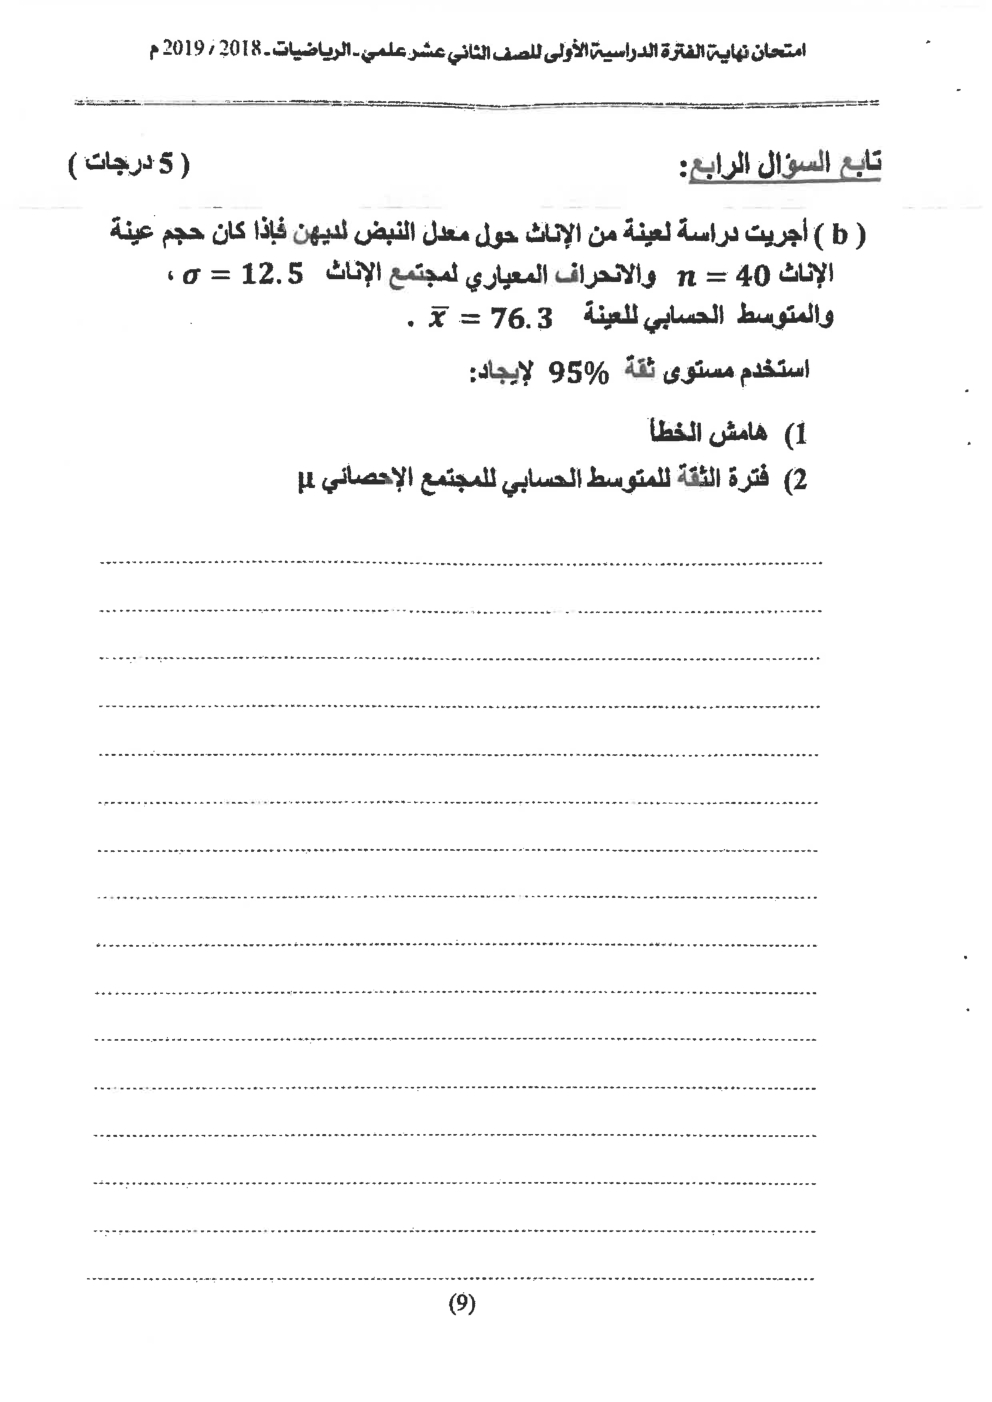 امتحان نهاية الفترة الدراسية الأولى للصف الثاني عشر علمي - الرياضيات - 2018 / 2019 م
تابع السؤال الرابع:
( 5 درجات )
( b ) أجريت دراسة لعينة من الإناث حول معدل النبض لديهن فإذا كان حجم عينة
الإناث n = 40 والانحراف المعياري لمجتمع الإناث σ = 12.5 ،
والمتوسط الحسابي للعينة x̄ = 76.3 .
استخدم مستوى ثقة 95% لإيجاد:
1) هامش الخطأ
2) فترة الثقة للمتوسط الحسابي للمجتمع الإحصائي μ
(9)